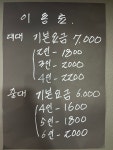 이 용 료
대대 기본요금 7,000
2인 - 1800
3인 - 2000
4인 - 2200
중대 기본요금 6.000
4인 - 1600
5인 - 1800
6인 - 2000